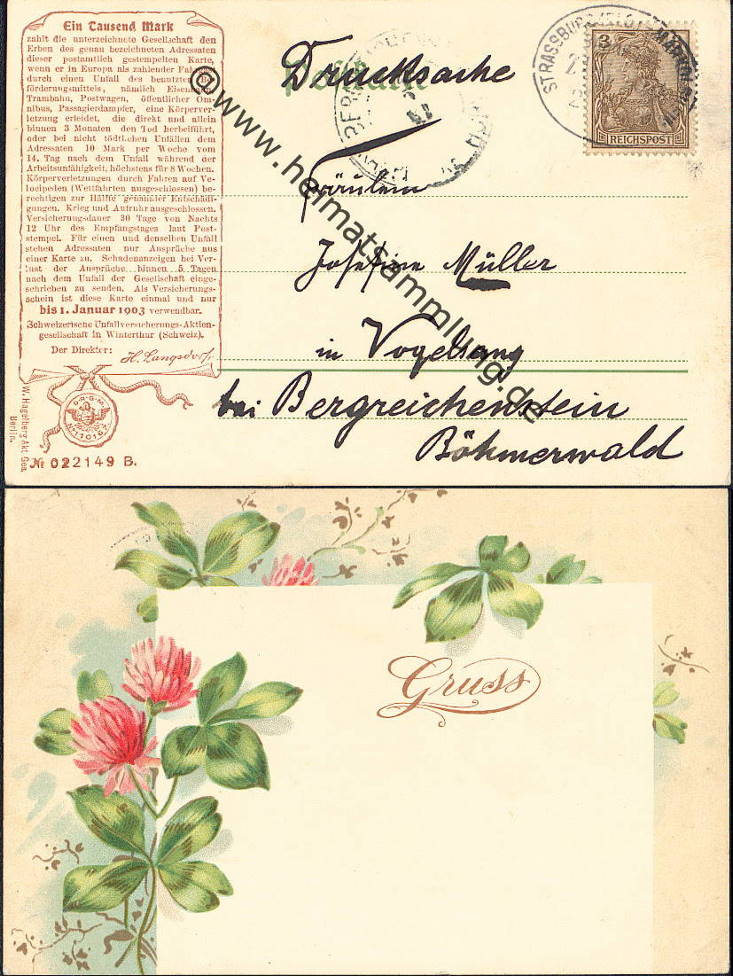 Ein Tausend Mark
zahlt die unterzeichnete Gesellschaft den
Erben des genau bezeichneten Adressaten
dieser postamtlich gestempelten Karte,
wenn er in Europa als zahlender Fahrgast
durch einen Unfall des benutzten Be-
förderungsmittels, nämlich Eisenbahn,
Trambahn, Postwagen, öffentlicher Om-
nibus, Passagierdampfer, eine Körperver-
letzung erleidet, die direkt und allein
binnen 3 Monaten den Tod herbeiführt,
oder bei nicht tödtlichen Unfällen dem
Adressaten 10 Mark per Woche vom
14. Tag nach dem Unfall während der
Arbeitsunfähigkeit, höchstens für 8 Wochen.
Körperverletzungen durch Fahren auf Ve-
locipeden (Wettfahrten ausgeschlossen) be-
rechtigen zur Hälfte genannter Entschädi-
gungen. Krieg und Aufruhr ausgeschlossen.
Versicherungsdauer 30 Tage von Nachts
12 Uhr des Empfangstages laut Post-
stempel. Für einen und denselben Unfall
stehen Adressaten nur Ansprüche aus
einer Karte zu. Schadenanzeigen bei Ver-
lust der Ansprüche binnen 5 Tagen
nach dem Unfall der Gesellschaft einge-
schrieben zu senden. Als Versicherungs-
schein ist diese Karte einmal und nur
bis 1. Januar 1903 verwendbar.
Schweizerische Unfallversicherungs-Aktien-
gesellschaft in Winterthur (Schweiz).
Der Direktor:
H. Langsdorf
D.R.G.M.
W. Hagelberg Akt. Ges.
Berlin.
№ 022149 B.
Postkarte
Drucksache
STRASSBURG
3
REICHSPOST
Fräulein
Josefine Müller
in Vogelsang
bei Bergreichenstein
Böhmerwald
©www.heimatsammlung.de
Gruss